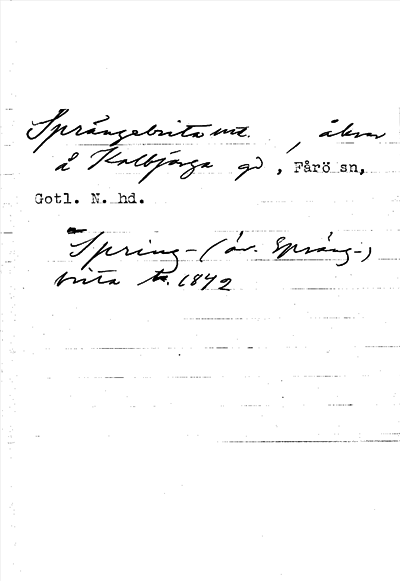 Språngebrita mt. , åkrar
å Kalbjärga gd , Fårö sn,
Gotl. N. hd.
Spring- (äv. Språng-)
brita 1842